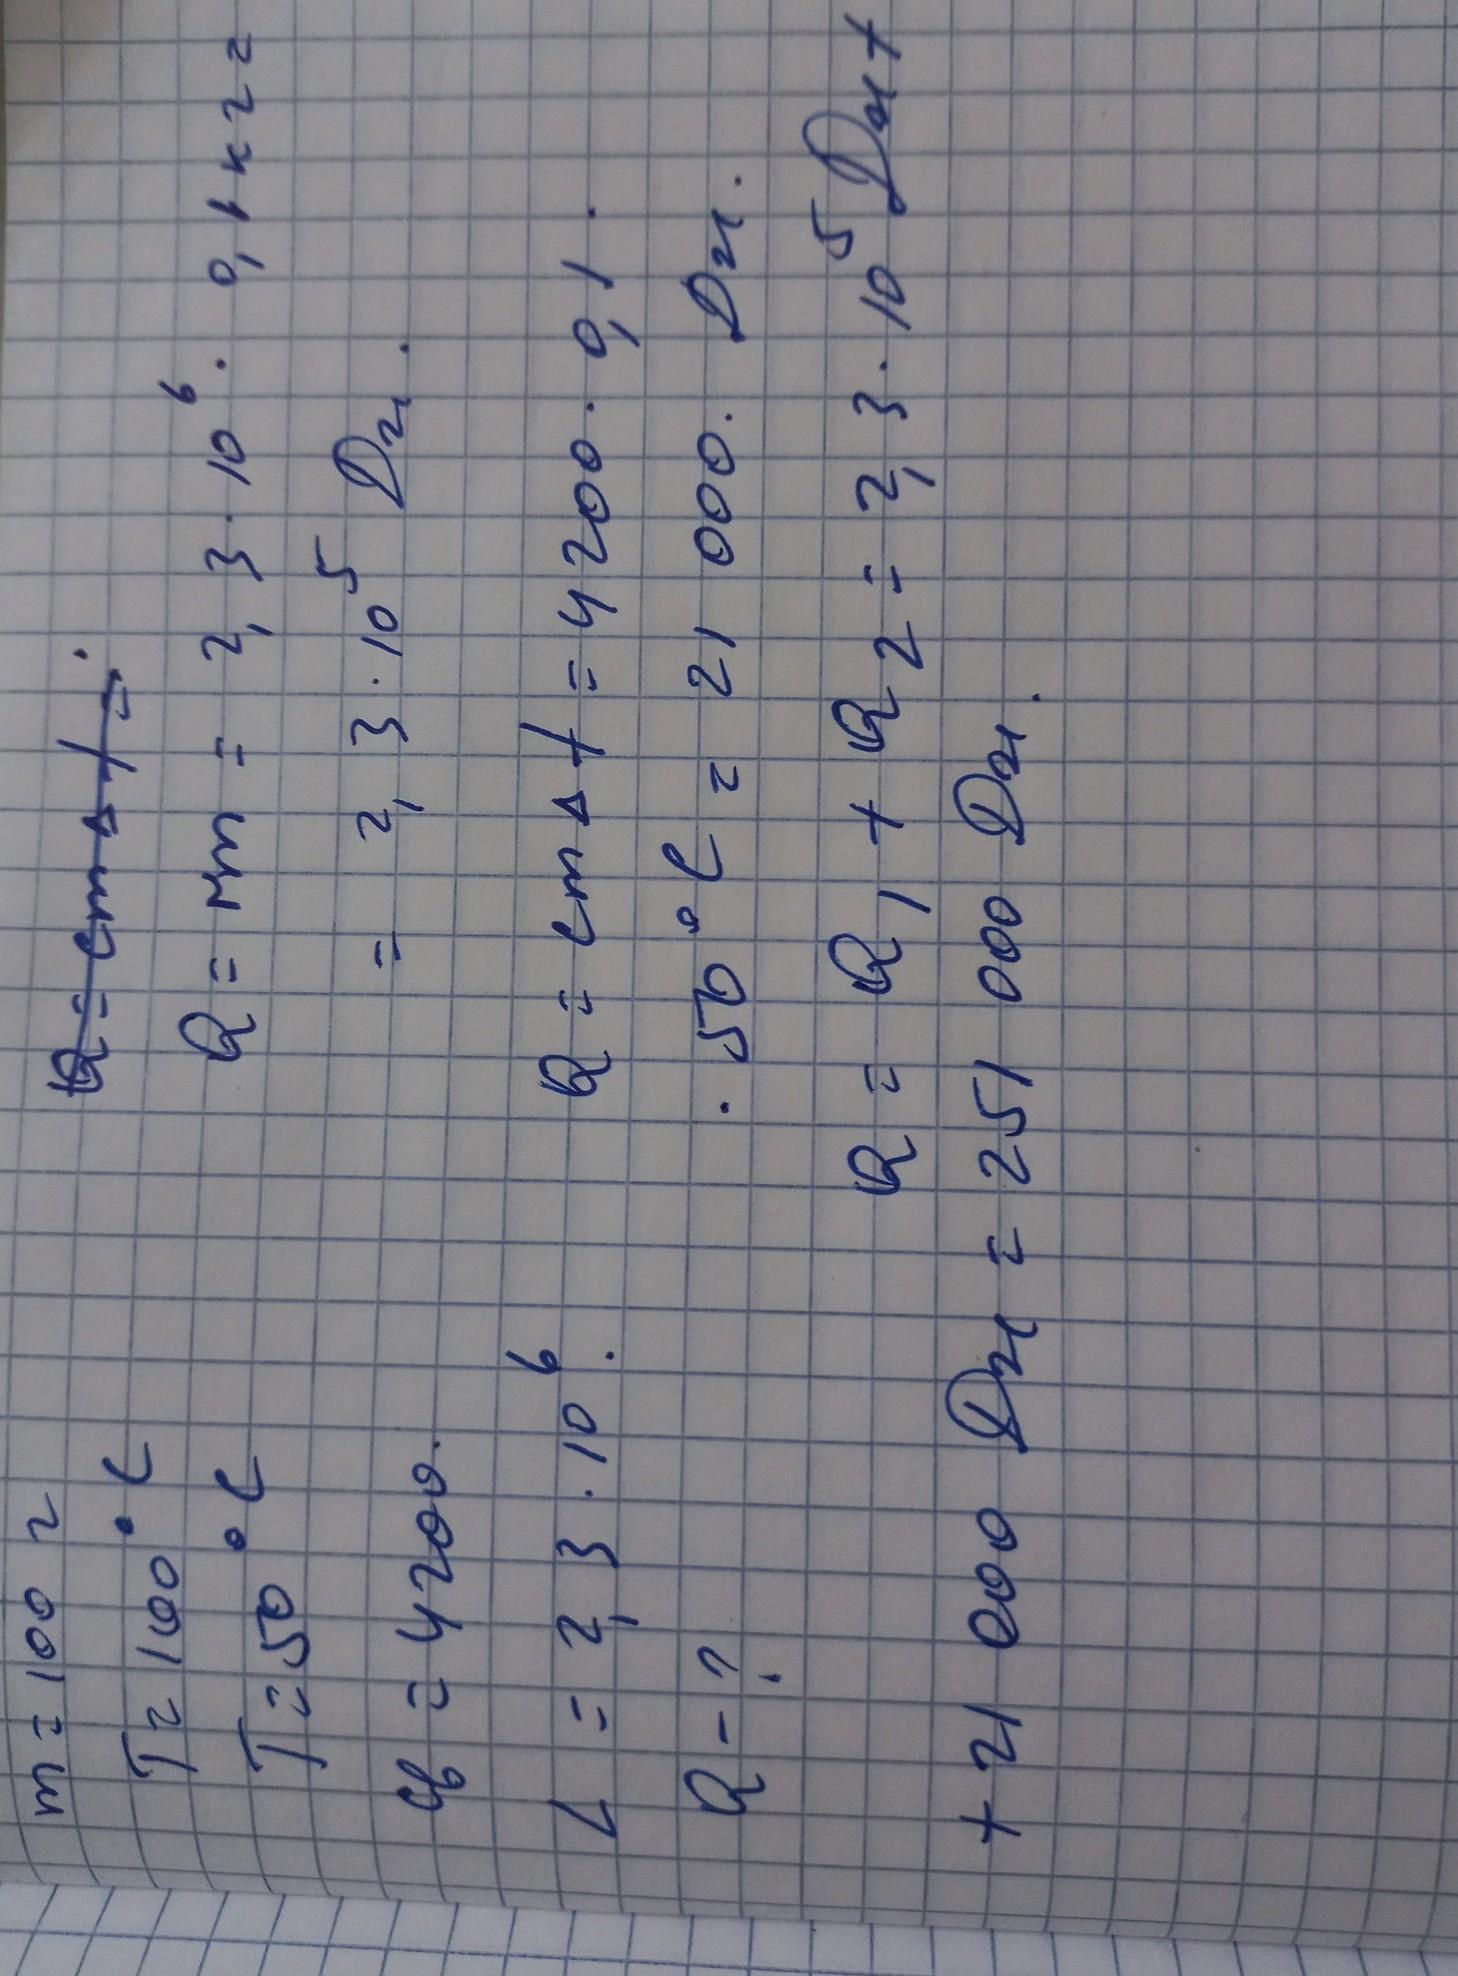 m = 100 г
T = 100°C
T = 50°C
cв = 4200.
L = 2,3 · 10⁶.
Q - ?
Q = cmΔt =.
Q = rm = 2,3 · 10⁶ · 0,1 кг =
= 2,3 · 10⁵ Дж.
Q = cmΔt = 4200 · 0,1 ·
· 50°C = 21 000. Дж.
Q = Q₁ + Q₂ = 2,3 · 10⁵ Дж +
+ 21 000 Дж = 251 000 Дж.